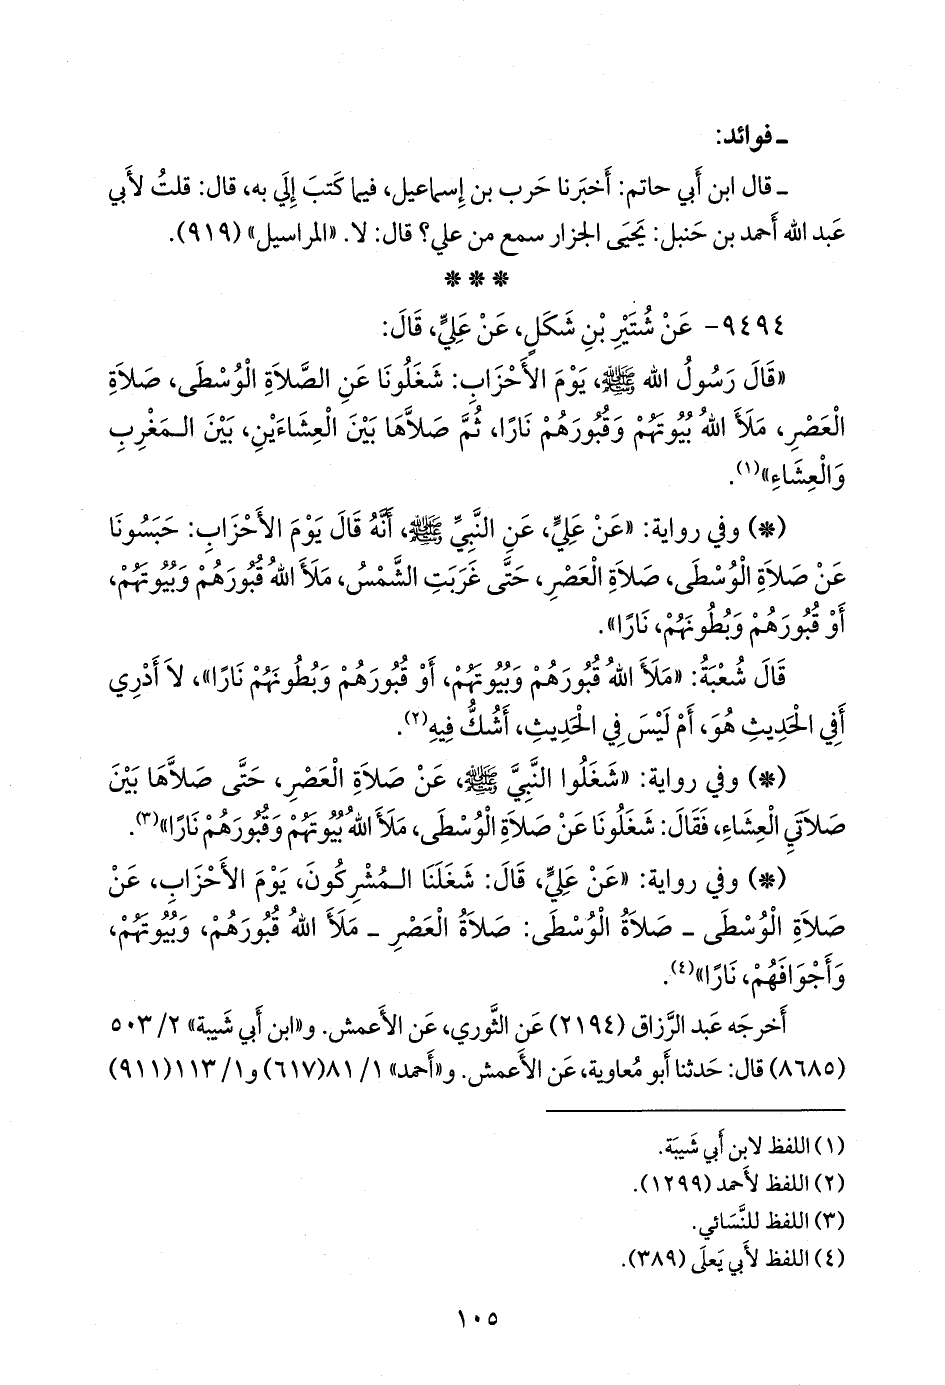 ـ فوائد:
ـ قال ابن أَبي حاتم: أَخبَرنا حَرب بن إِسماعيل، فيما كَتبَ إِلَي به، قال: قلتُ لأَبي
عَبد الله أَحمد بن حَنبل: يَحيَى الجزار سمع من علي؟ قال: لا. «المراسيل» (٩١٩).
* * *
٩٤٩٤- عَنْ شُتَيْرِ بْنِ شَكَلٍ، عَنْ عَلِيٍّ، قَالَ:
«قَالَ رَسُولُ الله ﷺ، يَوْمَ الأَحْزَابِ: شَغَلُونَا عَنِ الصَّلاَةِ الْوُسْطَى، صَلاَةِ
الْعَصْرِ، مَلأَ اللهُ بُيُوتَهُمْ وَقُبُورَهُمْ نَارًا، ثُمَّ صَلاَّهَا بَيْنَ الْعِشَاءَيْنِ، بَيْنَ الـمَغْرِبِ
وَالْعِشَاءِ»(١).
(*) وفي رواية: «عَنْ عَلِيٍّ، عَنِ النَّبِيِّ ﷺ، أَنَّهُ قَالَ يَوْمَ الأَحْزَابِ: حَبَسُونَا
عَنْ صَلاَةِ الْوُسْطَى، صَلاَةِ الْعَصْرِ، حَتَّى غَرَبَتِ الشَّمْسُ، مَلأَ اللهُ قُبُورَهُمْ وَبُيُوتَهُمْ،
أَوْ قُبُورَهُمْ وَبُطُونَهُمْ، نَارًا».
قَالَ شُعْبَةُ: «مَلأَ اللهُ قُبُورَهُمْ وَبُيُوتَهُمْ، أَوْ قُبُورَهُمْ وَبُطُونَهُمْ نَارًا»، لاَ أَدْرِي
أَفِي الْحَدِيثِ هُوَ، أَمْ لَيْسَ فِي الْحَدِيثِ، أَشُكُّ فِيهِ(٢).
(*) وفي رواية: «شَغَلُوا النَّبِيَّ ﷺ، عَنْ صَلاَةِ الْعَصْرِ، حَتَّى صَلاَّهَا بَيْنَ
صَلاَتَيِ الْعِشَاءِ، فَقَالَ: شَغَلُونَا عَنْ صَلاَةِ الْوُسْطَى، مَلأَ اللهُ بُيُوتَهُمْ وَقُبُورَهُمْ نَارًا»(٣).
(*) وفي رواية: «عَنْ عَلِيٍّ، قَالَ: شَغَلَنَا الـمُشْرِكُونَ، يَوْمَ الأَحْزَابِ، عَنْ
صَلاَةِ الْوُسْطَى ـ صَلاَةُ الْوُسْطَى: صَلاَةُ الْعَصْرِ ـ مَلأَ اللهُ قُبُورَهُمْ، وَبُيُوتَهُمْ،
وَأَجْوَافَهُمْ، نَارًا»(٤).
أَخرجَه عَبد الرَّزاق (٢١٩٤) عَن الثَّوري، عَن الأَعمش. و«ابن أَبي شَيبة» ٢/ ٥٠٣
(٨٦٨٥) قال: حَدثنا أَبو مُعاوية، عَن الأَعمش. و«أَحمد» ١/ ٨١ (٦١٧) و١/ ١١٣ (٩١١)
(١) اللفظ لابن أَبي شَيبَة.
(٢) اللفظ لأَحمد (١٢٩٩).
(٣) اللفظ للنَّسَائي.
(٤) اللفظ لأَبي يَعلَى (٣٨٩).
١٠٥